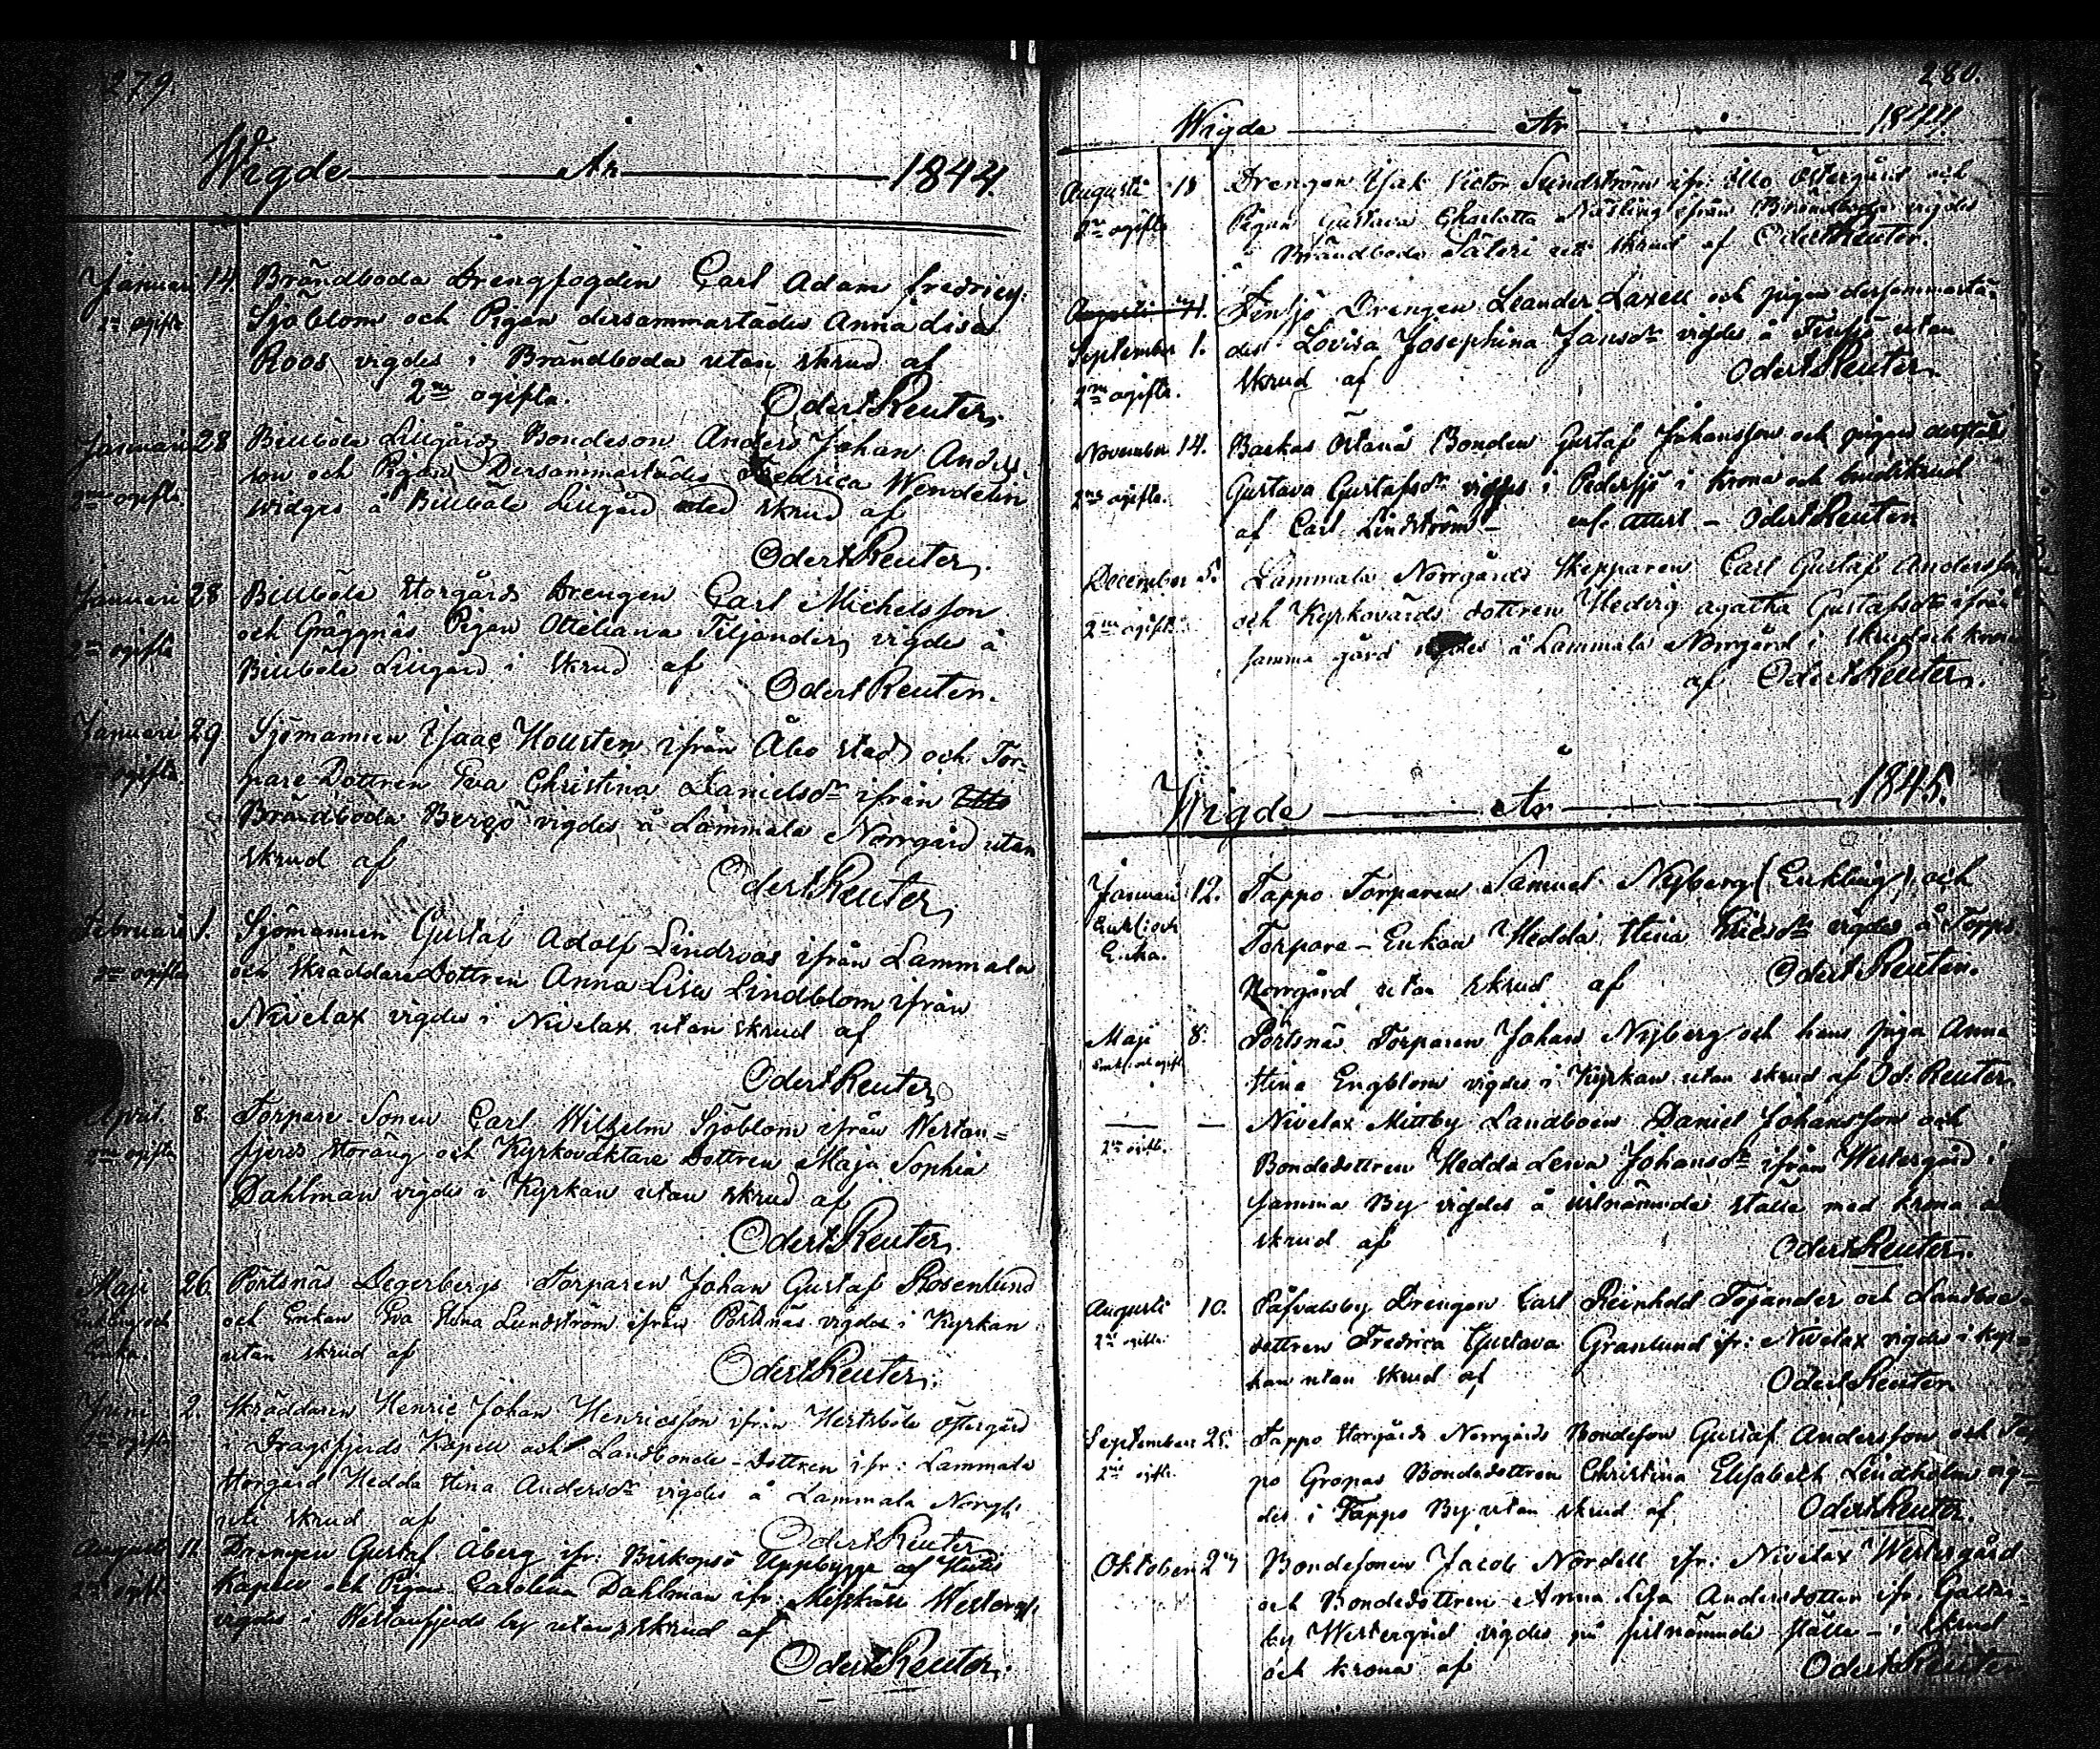 279.
Wigde År 1844.
Januari 14. Brändboda Drengfogden Carl Adam Fredricss:
2ne ogifta Sjöblom och Pigan dersammastädes Anna Lisa
Roos vigdes i Brändboda utan skrud af
2ne ogifta. Odert Reuter.
Januari 28 Billböle Lillgårds Bondeson Anders Johan Anders
2ne ogifta son och Pigan Dersammastädes Fredrica Wendelin
widges å Billböle Lillgård med skrud af
Odert Reuter.
Januari 28 Billböle Storgårds Drengen Carl Michelsson
2ne ogifta och Gräggnäs Pigan Otteliana Tiljander vigde å
Billböle Lillgård i skrud af
Odert Reuter.
Januari 29 Sjömannen Isaac Hollsten ifrån Åbo stad och Tor=
ogifta. pare-Dottren Eva Christina Danielsdr ifrån
Brändboda Bergö vigdes å Lammala Norrgård utan
skrud af
Odert Reuter.
Februari 1. Sjömannen Gustaf Adolf Lindroos ifrån Lammala
2ne ogifta och Skräddare Dottren Anna Lisa Lindblom ifrån
Nivelax vigdes i Nivelax utan skrud af
Odert Reuter
April. 8. Torpare Sonen Carl Wilhelm Sjöblom ifrån Westan=
2ne ogifta fjerds Storäng och Kyrkovaktare Dottren Maja Sophia
Dahlman vigdes i Kyrkan utan skrud af
Odert Reuter.
Maji 26. Pörtsnäs Degerbergs Torparen Johan Gustaf Rosenlund
Enkling och och Enkan Eva Stina Lundström ifrån Pörtsnäs vigdes i Kyrkan
Enka. utan skrud af
Odert Reuter.
Juni 2. Skräddaren Henric Johan Henricsson ifrån Hertsböle Östergård
2ne ogifta i Dragsfjerds Kapell och Landbonde-Dottren ifr: Lammala
Storgård Hedda Stina Andersdr vigdes å Lammala Norrg:
utan skrud af
Odert Reuter
August 11. Drengen Gustaf Åberg ifr: Biskopsö Uppbygge af Hitis
2ne ogifta Kapell och Pigan Carolina Dahlman ifr: Misskärr Westerg:
vigdes i Westanfjerds by utan skrud af
Odert Reuter.
280.
Wigde År 1844.
Augusti 18 Drengen Isak Victor Sundström ifr: Illo Östergård och
2ne ogifta Pigan Gustava Charlotta Näsling ifrån Brändboda vigdes
å Brändboda Säteri utan skrud af Odert Reuter.
Augusti Finsjö Drengen Leander Laxell och pigan dersammastä=
September 1. des Lovisa Josephina Jansdr vigdes å Finsjö utan
2ne ogifta. skrud af Odert Reuter.
November 14. Backas Östanå Bonden Gustaf Johansson och pigan derstäd
2ne ogifta. Gustava Gustafsdr vigdes i Pedersjö i krona och brudskrud
af Carl Lindström – enl. attest – Odert Reuter
December 5. Lammala Norrgårds Skepparen Carl Gustaf Andersson
2ne ogifta. och Kyrkovärds dottren Hedvig Agatha Gustafsdr ifrån
samma gård vigdes å Lammala Norrgård i skrud och krona
af Odert Reuter.
Wigde År 1845.
Januari 12. Tappo Torparen Samuel Nyberg (Enkling) och
Enkl: och Torpare-Enkan Hedda Stina Ericsdr vigdes å Tappo
Enka. Norrgård utan skrud af Odert Reuter.
Maji 8. Pörtsnäs Torparen Johan Nyberg och hans piga Anna
Enkl: och ogift Stina Engblom vigdes i Kyrkan utan skrud af Od: Reuter.
— — Nivelax Mittby Landboen Daniel Johansson och
2ne ogifta. Bondedottren Hedda Lena Johansdr ifrån Westergård i
samma By vigdes å sistnämnda ställe med krona o
skrud af Odert Reuter.
Augusti 10. Påfvalsby Drengen Carl Reinhold Tojander och Landboe
2ne ogifta. dottren Fredrica Gustava Granlund ifr: Nivelax vigdes i Kyr=
kan utan skrud af Odert Reuter
September 28. Tappo Storgårds Norrgårds Bondeson Gustaf Andersson och Tap
2ne ogifta. po Gropas Bondedottren Christina Elisabeth Lindholm vig=
des i Tappo By utan skrud af Odert Reuter.
Oktober 27 Bondesonen Jacob Nordell ifr: Nivelax Westergård
och Bondedottren Anna Lisa Andersdotter ifr: Galtar=
by Westergård vigdes på sistnämnda ställe – i skrud
och krona af Odert Reuter